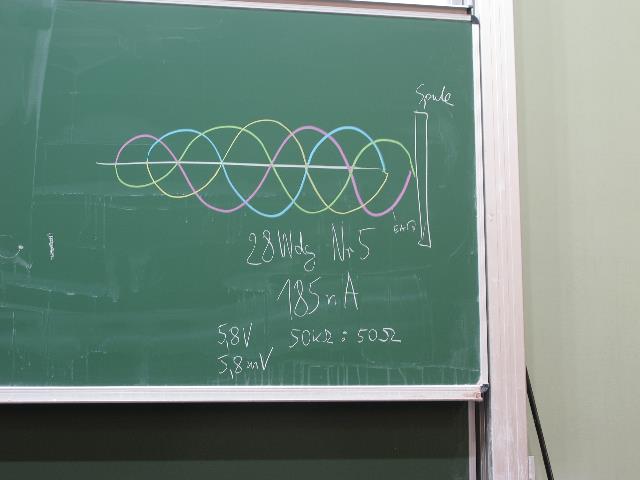 Spule
28 Wdg Nr 5
185 r. A
5,8V 50kΩ : 50Ω
5,8 mV